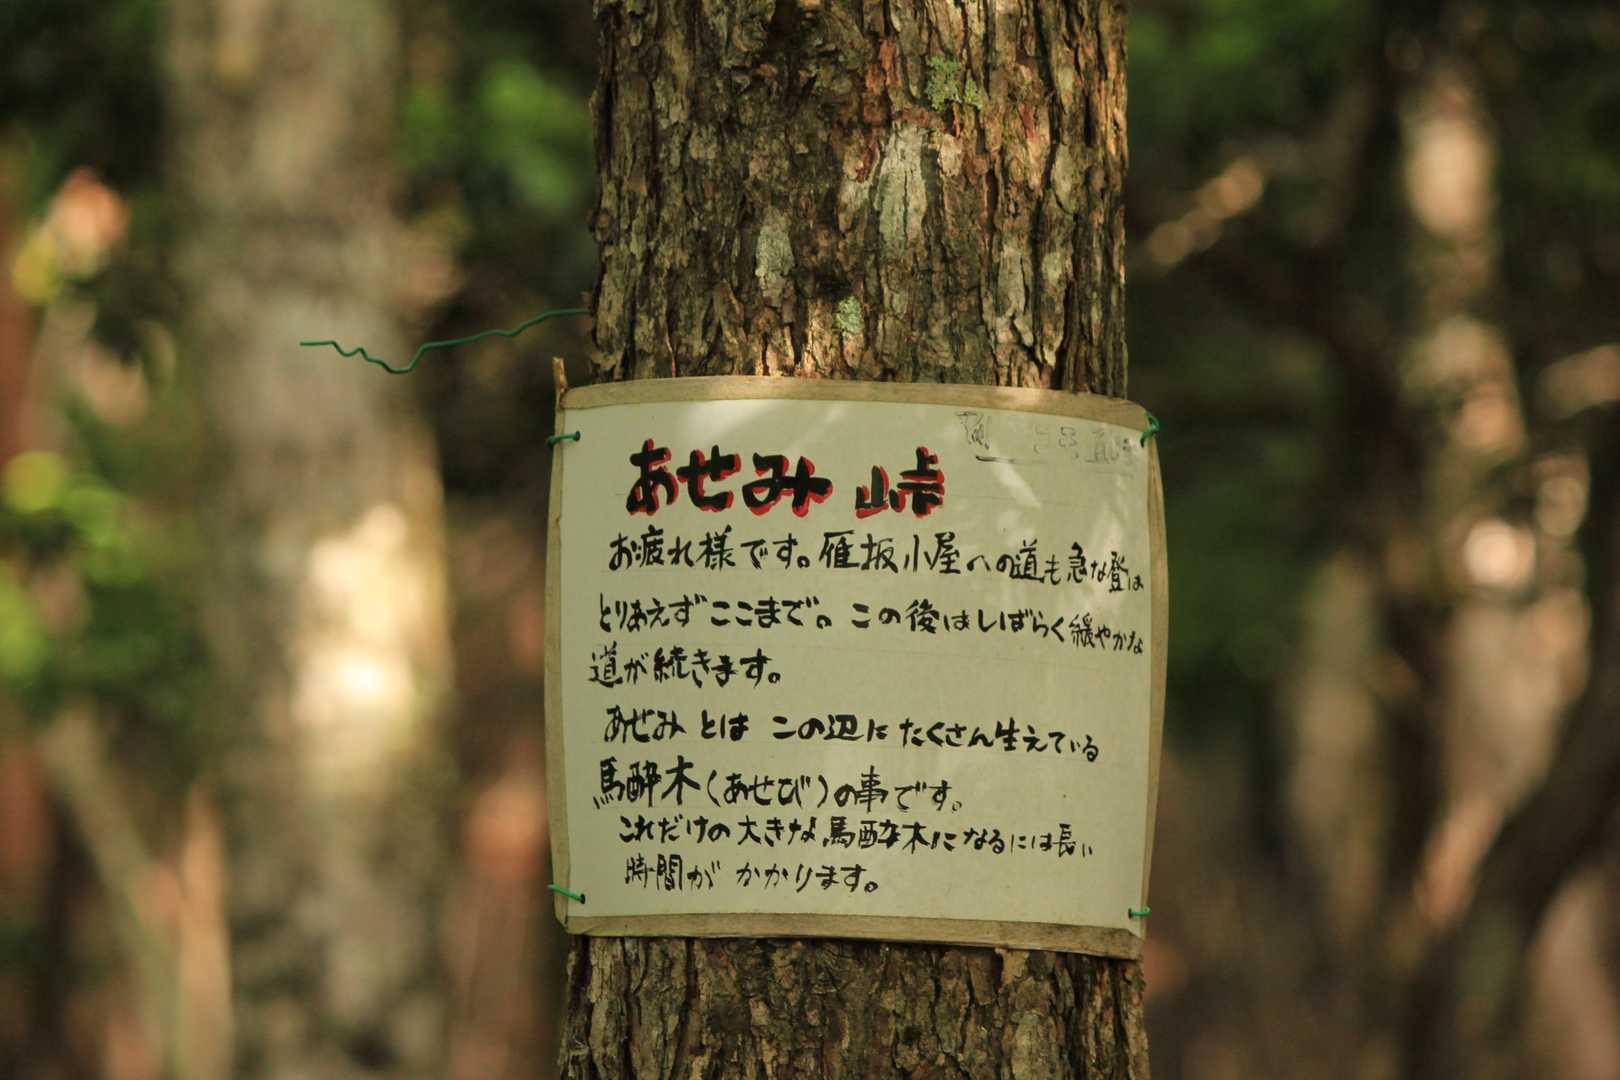 あせみ峠
お疲れ様です。雁坂小屋への道も急な登は
とりあえずここまで。この後はしばらく緩やかな
道が続きます。
あせみとはこの辺にたくさん生えている
馬酔木(あせび)の事です。
これだけの大きな馬酔木になるには長い
時間がかかります。